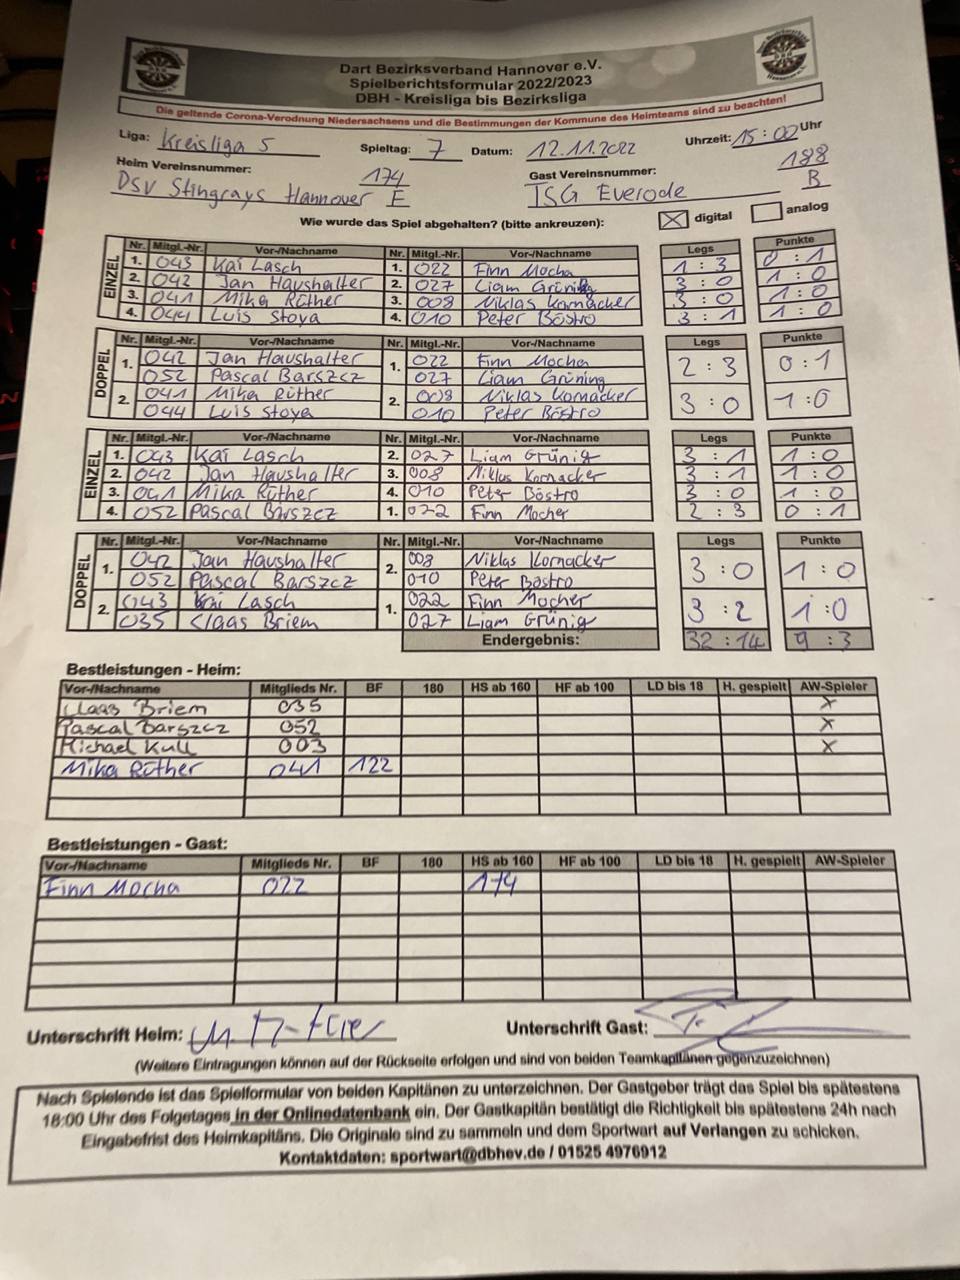 Dart Bezirksverband Hannover e.V.
Spielberichtsformular 2022/2023
DBH - Kreisliga bis Bezirksliga
Die geltende Corona-Verodnung Niedersachsens und die Bestimmungen der Kommune des Heimteams sind zu beachten!
Liga: Kreisliga 5 Spieltag: 7 Datum: 12.11.2022 Uhrzeit: 15:00 Uhr
Heim Vereinsnummer: 174 Gast Vereinsnummer: 188
DSV Stingrays Hannover E TSG Everode B
Wie wurde das Spiel abgehalten? (bitte ankreuzen): digital analog
EINZEL
Nr. Mitgl.-Nr. Vor-/Nachname Nr. Mitgl.-Nr. Vor-/Nachname Legs Punkte
1. 043 Kai Lasch 1. 022 Finn Mocha 1 : 3 0 : 1
2. 042 Jan Haushalter 2. 027 Liam Grüning 3 : 0 1 : 0
3. 041 Mika Rüther 3. 008 Niklas Kornacker 3 : 0 1 : 0
4. 044 Luis Stoya 4. 010 Peter Böstro 3 : 1 1 : 0
DOPPEL
Nr. Mitgl.-Nr. Vor-/Nachname Nr. Mitgl.-Nr. Vor-/Nachname Legs Punkte
1. 042 Jan Haushalter 1. 022 Finn Mocha 2 : 3 0 : 1
052 Pascal Barszcz 027 Liam Grüning
2. 041 Mika Rüther 2. 008 Niklas Kornacker 3 : 0 1 : 0
044 Luis Stoya 010 Peter Böstro
EINZEL
Nr. Mitgl.-Nr. Vor-/Nachname Nr. Mitgl.-Nr. Vor-/Nachname Legs Punkte
1. 043 Kai Lasch 2. 027 Liam Grünig 3 : 1 1 : 0
2. 042 Jan Haushalter 3. 008 Niklas Kornacker 3 : 1 1 : 0
3. 041 Mika Rüther 4. 010 Peter Böstro 3 : 0 1 : 0
4. 052 Pascal Barszcz 1. 022 Finn Mocher 2 : 3 0 : 1
DOPPEL
Nr. Mitgl.-Nr. Vor-/Nachname Nr. Mitgl.-Nr. Vor-/Nachname Legs Punkte
1. 042 Jan Haushalter 2. 008 Niklas Kornacker 3 : 0 1 : 0
052 Pascal Barszcz 010 Peter Böstro
2. 043 Kai Lasch 1. 022 Finn Mocher 3 : 2 1 : 0
035 Claas Briem 027 Liam Grünig
Endergebnis: 32 : 14 9 : 3
Bestleistungen - Heim:
Vor-/Nachname Mitglieds Nr. BF 180 HS ab 160 HF ab 100 LD bis 18 H. gespielt AW-Spieler
Claas Briem 035 X
Pascal Barszcz 052 X
Michael Kull 003 X
Mika Rüther 041 122
Bestleistungen - Gast:
Vor-/Nachname Mitglieds Nr. BF 180 HS ab 160 HF ab 100 LD bis 18 H. gespielt AW-Spieler
Finn Mocha 022 174
Unterschrift Heim: Unterschrift Gast:
(Weitere Eintragungen können auf der Rückseite erfolgen und sind von beiden Teamkapitänen gegenzuzeichnen)
Nach Spielende ist das Spielformular von beiden Kapitänen zu unterzeichnen. Der Gastgeber trägt das Spiel bis spätestens
18:00 Uhr des Folgetages in der Onlinedatenbank ein. Der Gastkapitän bestätigt die Richtigkeit bis spätestens 24h nach
Eingabefrist des Heimkapitäns. Die Originale sind zu sammeln und dem Sportwart auf Verlangen zu schicken.
Kontaktdaten: sportwart@dbhev.de / 01525 4976912